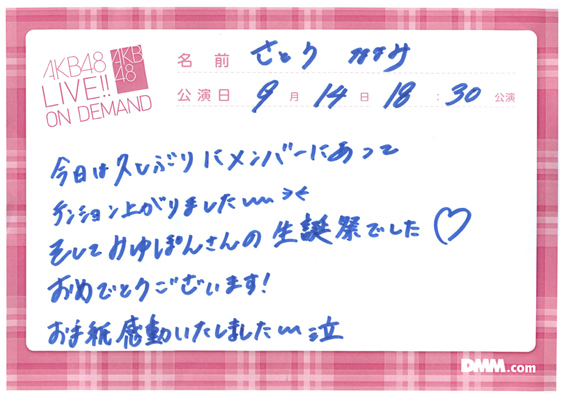 AKB48
LIVE!!
ON DEMAND
AKB
48
名前 さとう ななみ
公演日 9月14日18:30公演
今日は久しぶりにメンバーにあって
テンション上がりました〰><
そしてみゆぽんさんの生誕祭でした♡
おめでとうございます!
お手紙感動いたしました〰泣
DMM.com